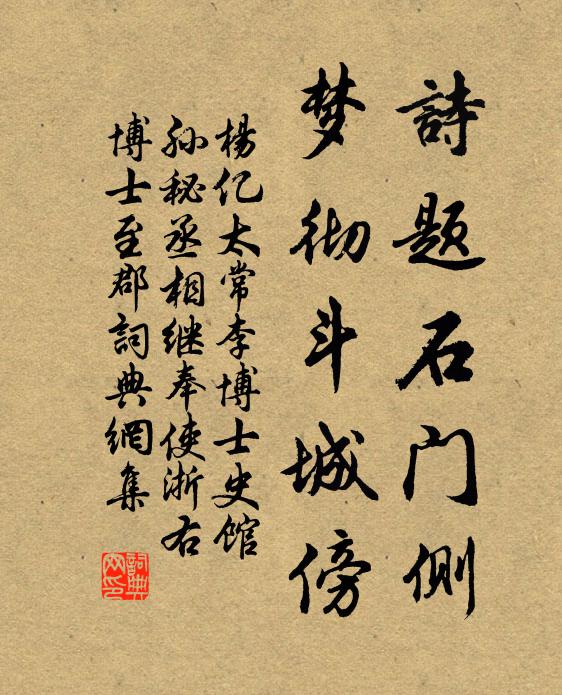 詩题石门侧
梦彻斗城傍
楊亿太常李博士史馆
孙秘丞相继奉使浙右
博士至郡詞典網集
詞典
网印